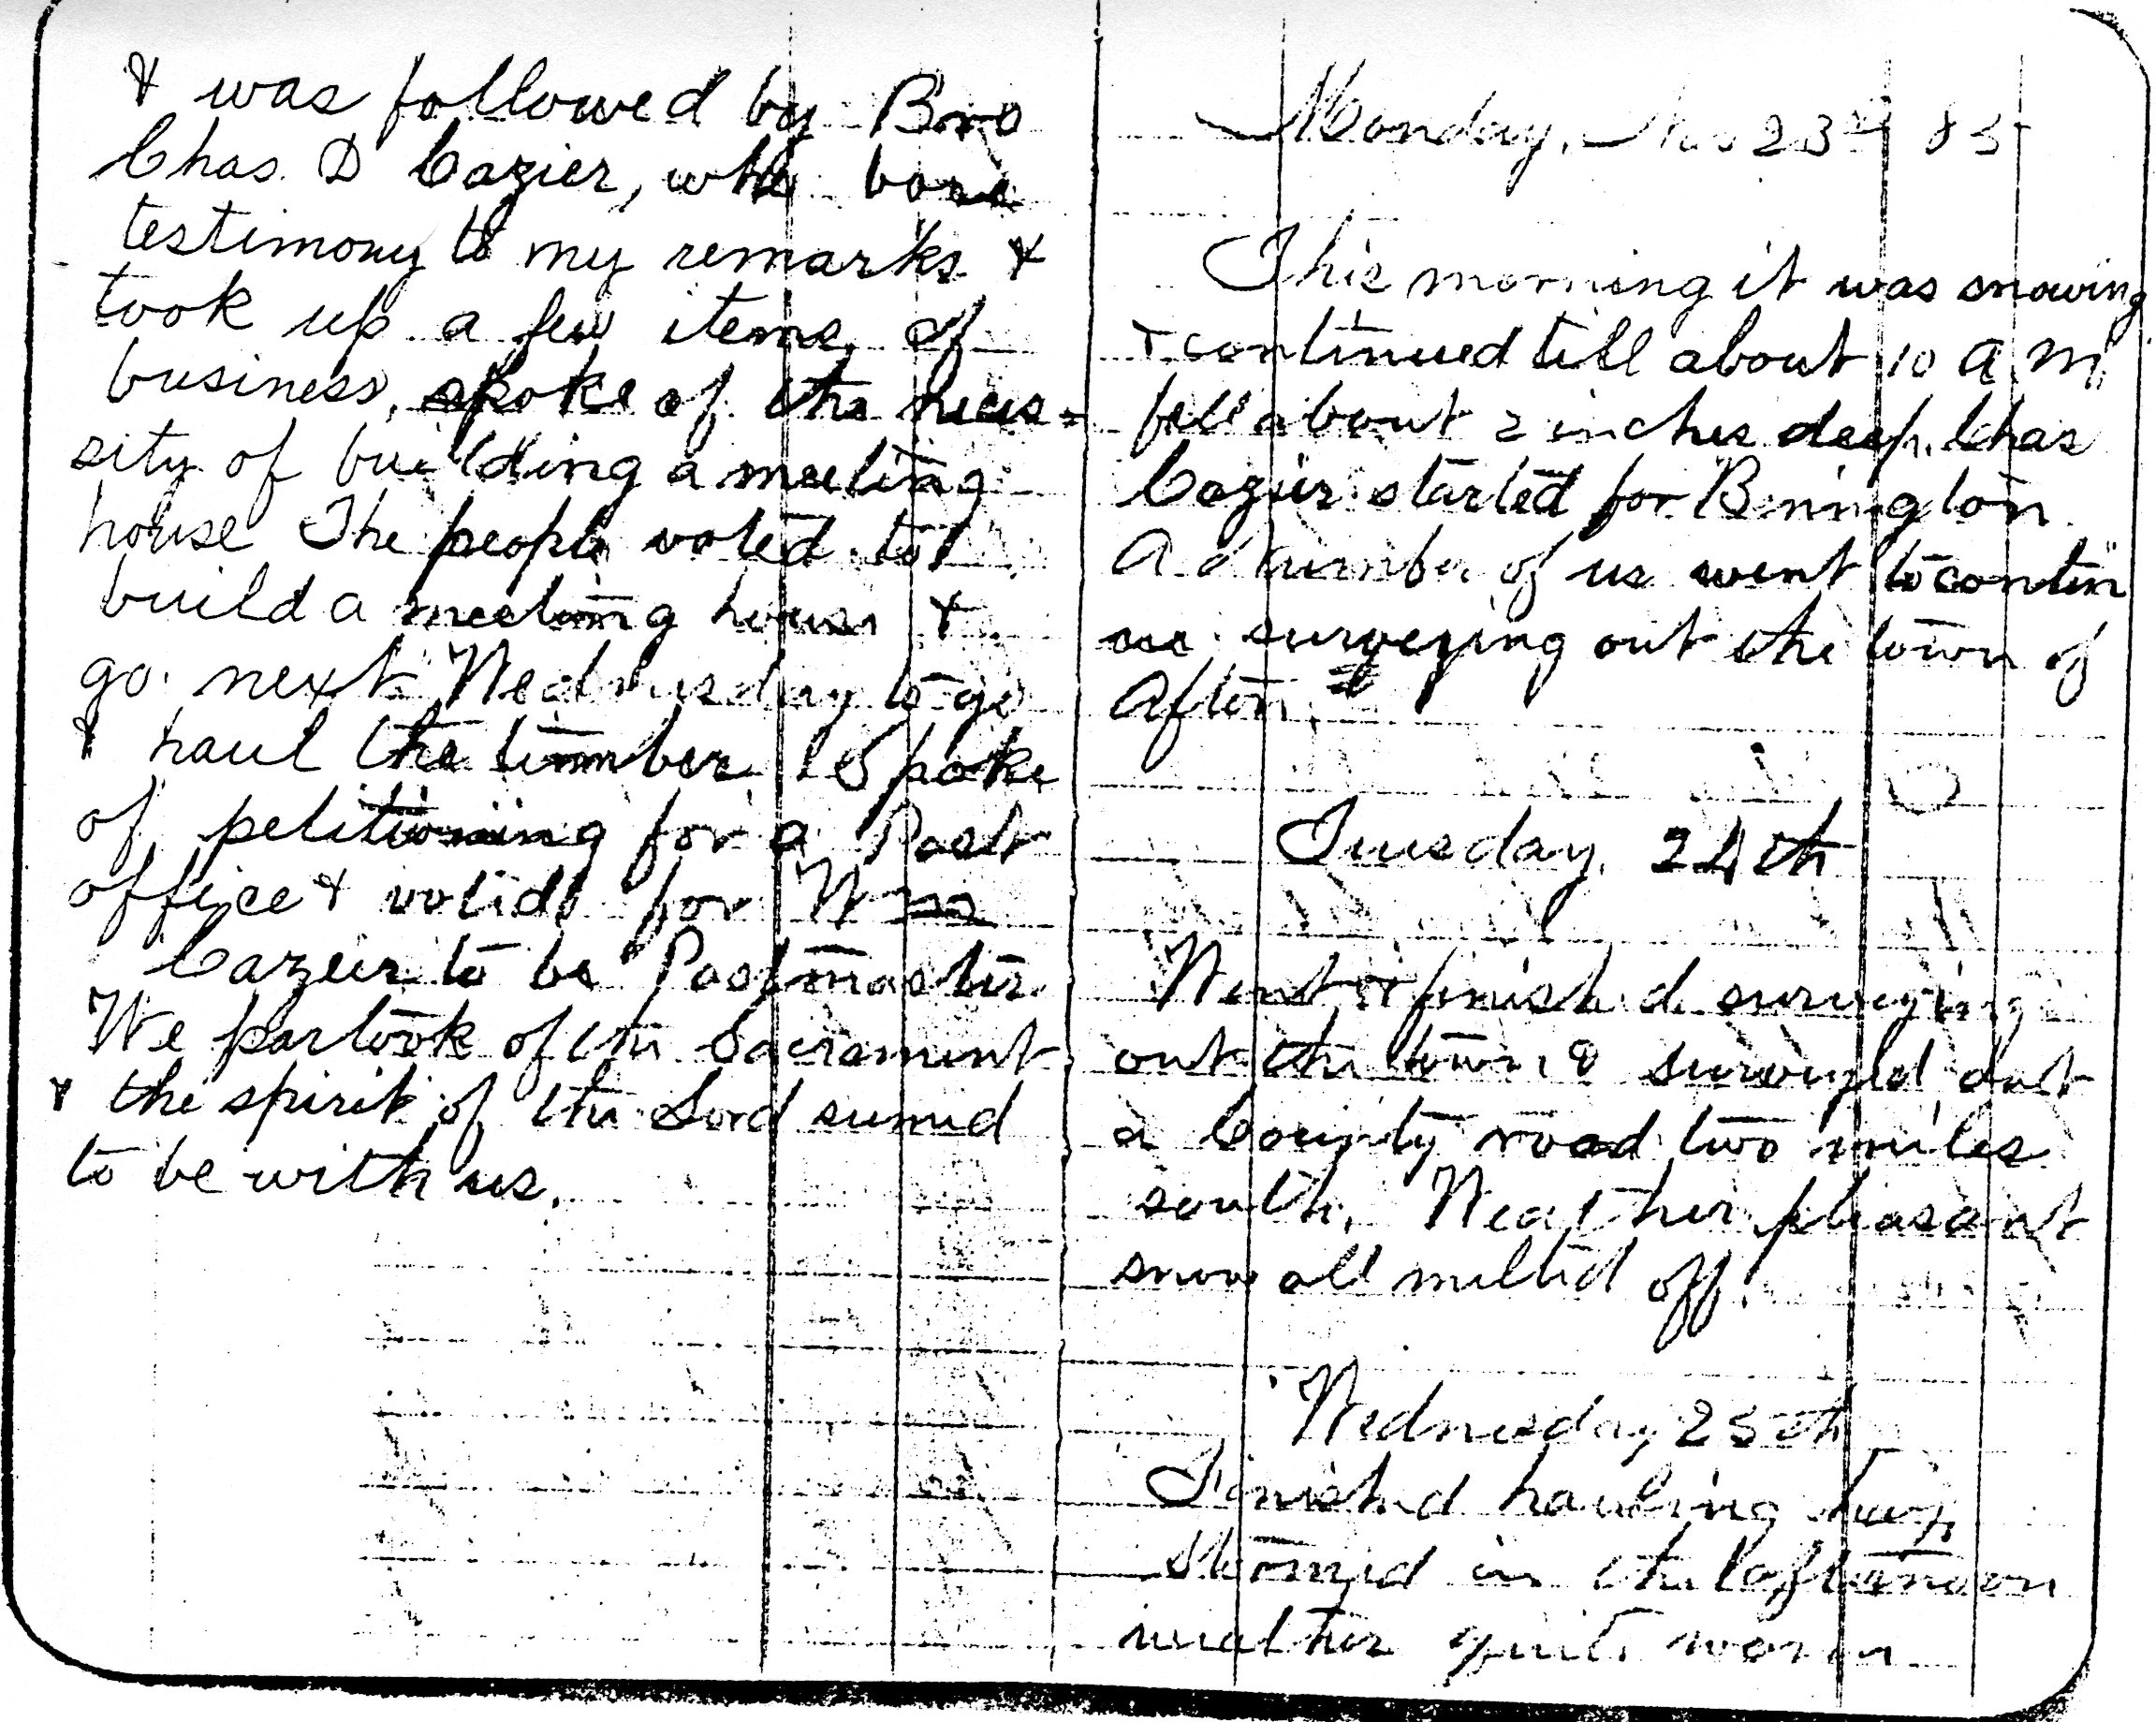 & was followed by Bro
Chas D Cazier, who bore
testimony to my remarks &
took up a few items of
business, spoke of the neces-
sity of building a meeting
house The people voted to
build a meeting house &
go next Wednesday to go
& haul the timber Spoke
of petitioning for a Post
office & voted for Wm
Cazier to be Postmaster
We partook of the Sacrament
& the spirit of the Lord sumed
to be with us.
Monday, Nov 23rd 85
This morning it was snowing
& continued till about 10 a m
fell about 2 inches deep. Chas
Cazier started for Bennington
A number of us went to contin
ue surveying out the town of
Afton.
Tuesday, 24th
Went & finished surveying
out the town & surveyed out
a County road two miles
south. Weather pleasant
snow all melted off.
Wednesday 25th
Finished hauling hay,
Stormed in the afternoon
weather quite warm